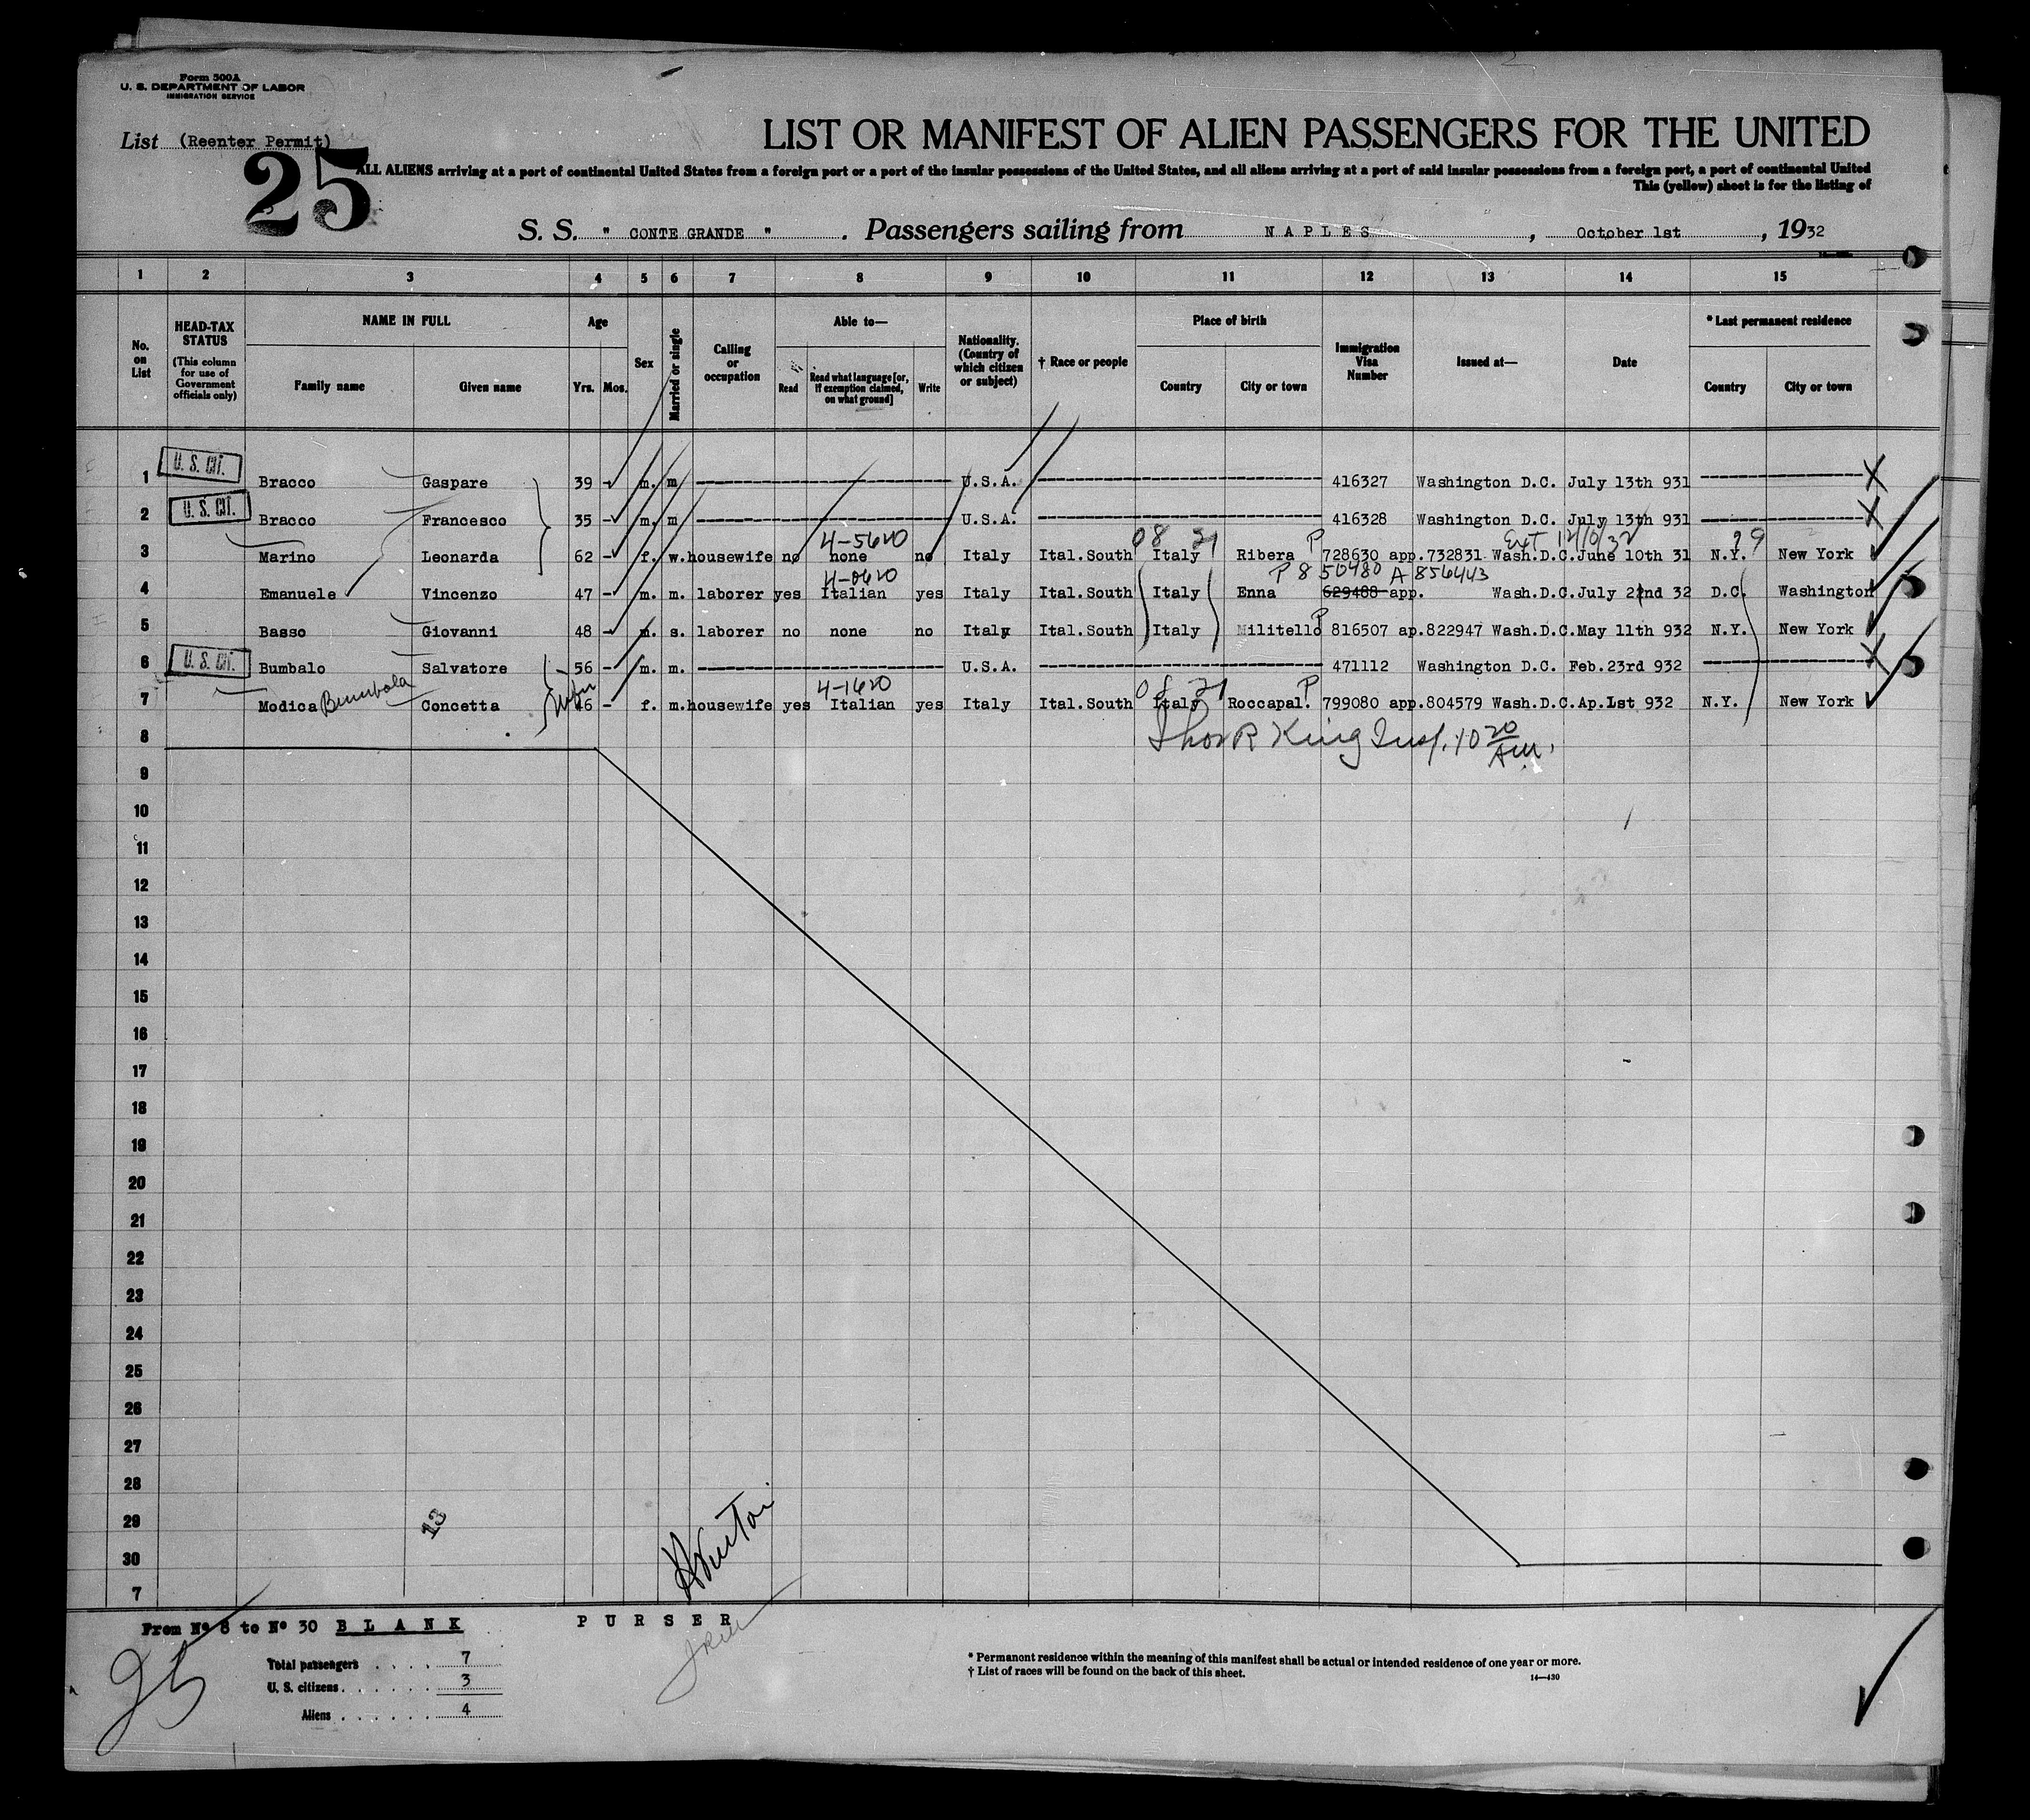 Form 500A
U. S. DEPARTMENT OF LABOR
IMMIGRATION SERVICE
List (Reenter Permit)
25
LIST OR MANIFEST OF ALIEN PASSENGERS FOR THE UNITED
ALL ALIENS arriving at a port of continental United States from a foreign port or a port of the insular possessions of the United States, and all aliens arriving at a port of said insular possessions from a foreign port, a port of continental United
This (yellow) sheet is for the listing of
S. S. " CONTE GRANDE " . Passengers sailing from NAPLES , October 1st , 1932
1 2 3 4 5 6 7 8 9 10 11 12 13 14 15
No. on List
HEAD-TAX STATUS (This column for use of Government officials only)
NAME IN FULL
Family name Given name
Age
Yrs. Mos.
Sex
Married or single
Calling or occupation
Able to—
Read Read what language [or, if exemption claimed, on what ground] Write
Nationality. (Country of which citizen or subject)
† Race or people
Place of birth
Country City or town
Immigration Visa Number
Issued at—
Date
* Last permanent residence
Country City or town
1 U. S. CIT. Bracco Gaspare 39 - m. m U.S.A. 416327 Washington D.C. July 13th 931
2 U. S. CIT. Bracco Francesco 35 - m. m U.S.A. 416328 Washington D.C. July 13th 931
4-5620 08 21 P Ext 12/10/32 99
3 Marino Leonarda 62 - f. w. housewife no none no Italy Ital.South Italy Ribera 728630 app.732831 Wash.D.C. June 10th 31 N.Y. New York
4-0620 P 850480 A 856443
4 Emanuele Vincenzo 47 - m. m. laborer yes Italian yes Italy Ital.South Italy Enna 629488 app. Wash.D.C. July 22nd 32 D.C. Washington
5 Basso Giovanni 48 - m. s. laborer no none no Italy Ital.South Italy Militello P 816507 ap.822947 Wash.D.C. May 11th 932 N.Y. New York
6 U. S. CIT. Bumbalo Salvatore 56 - m. m. U.S.A. 471112 Washington D.C. Feb.23rd 932
4-1620 08 21 P
7 Modica Bumbola Concetta wife 46 - f. m. housewife yes Italian yes Italy Ital.South Italy Roccapal. 799080 app.804579 Wash.D.C. Ap.1st 932 N.Y. New York
8 Thos R King Insp. 10 20 AM.
9
10
11
12
13
14
15
16
17
18
19
20
21
22
23
24
25
26
27
28
29 13
30
7
From Nº 8 to Nº 30 BLANK
PURSER
25
Total passengers . . . . 7
U. S. citizens . . . . . . 3
Aliens . . . . . . 4
* Permanont residence within the meaning of this manifest shall be actual or intended residence of one year or more.
† List of races will be found on the back of this sheet.
14—430